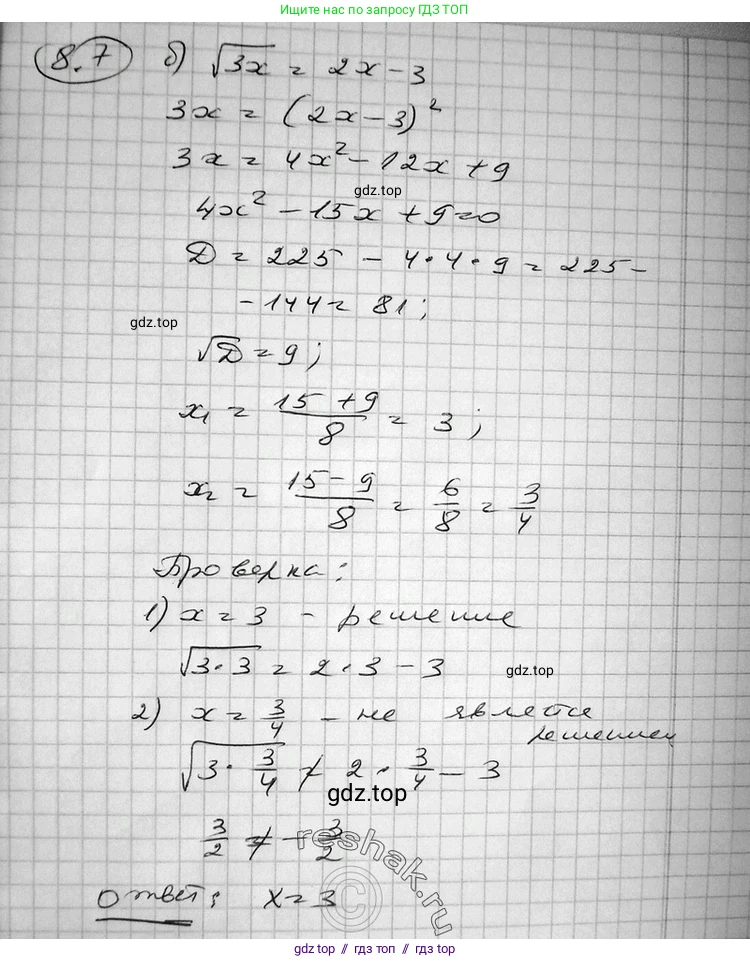 Ищите нас по запросу ГДЗ ТОП
8.7 б) √3x = 2x - 3
3x = (2x - 3)²
3x = 4x² - 12x + 9
gdz.top
4x² - 15x + 9 = 0
Д = 225 - 4·4·9 = 225 -
- 144 = 81;
gdz.top
√Д = 9;
x₁ = (15 + 9)/8 = 3;
x₂ = (15 - 9)/8 = 6/8 = 3/4
Проверка:
1) x = 3 - решение
√3·3 = 2·3 - 3
gdz.top
2) x = 3/4 - не является
решением
√3·3/4 ≠ 2·3/4 - 3
gdz.top
3/2 ≠ - 3/2
reshak.ru
©
Ответ: x = 3
gdz.top // гдз топ // gdz.top